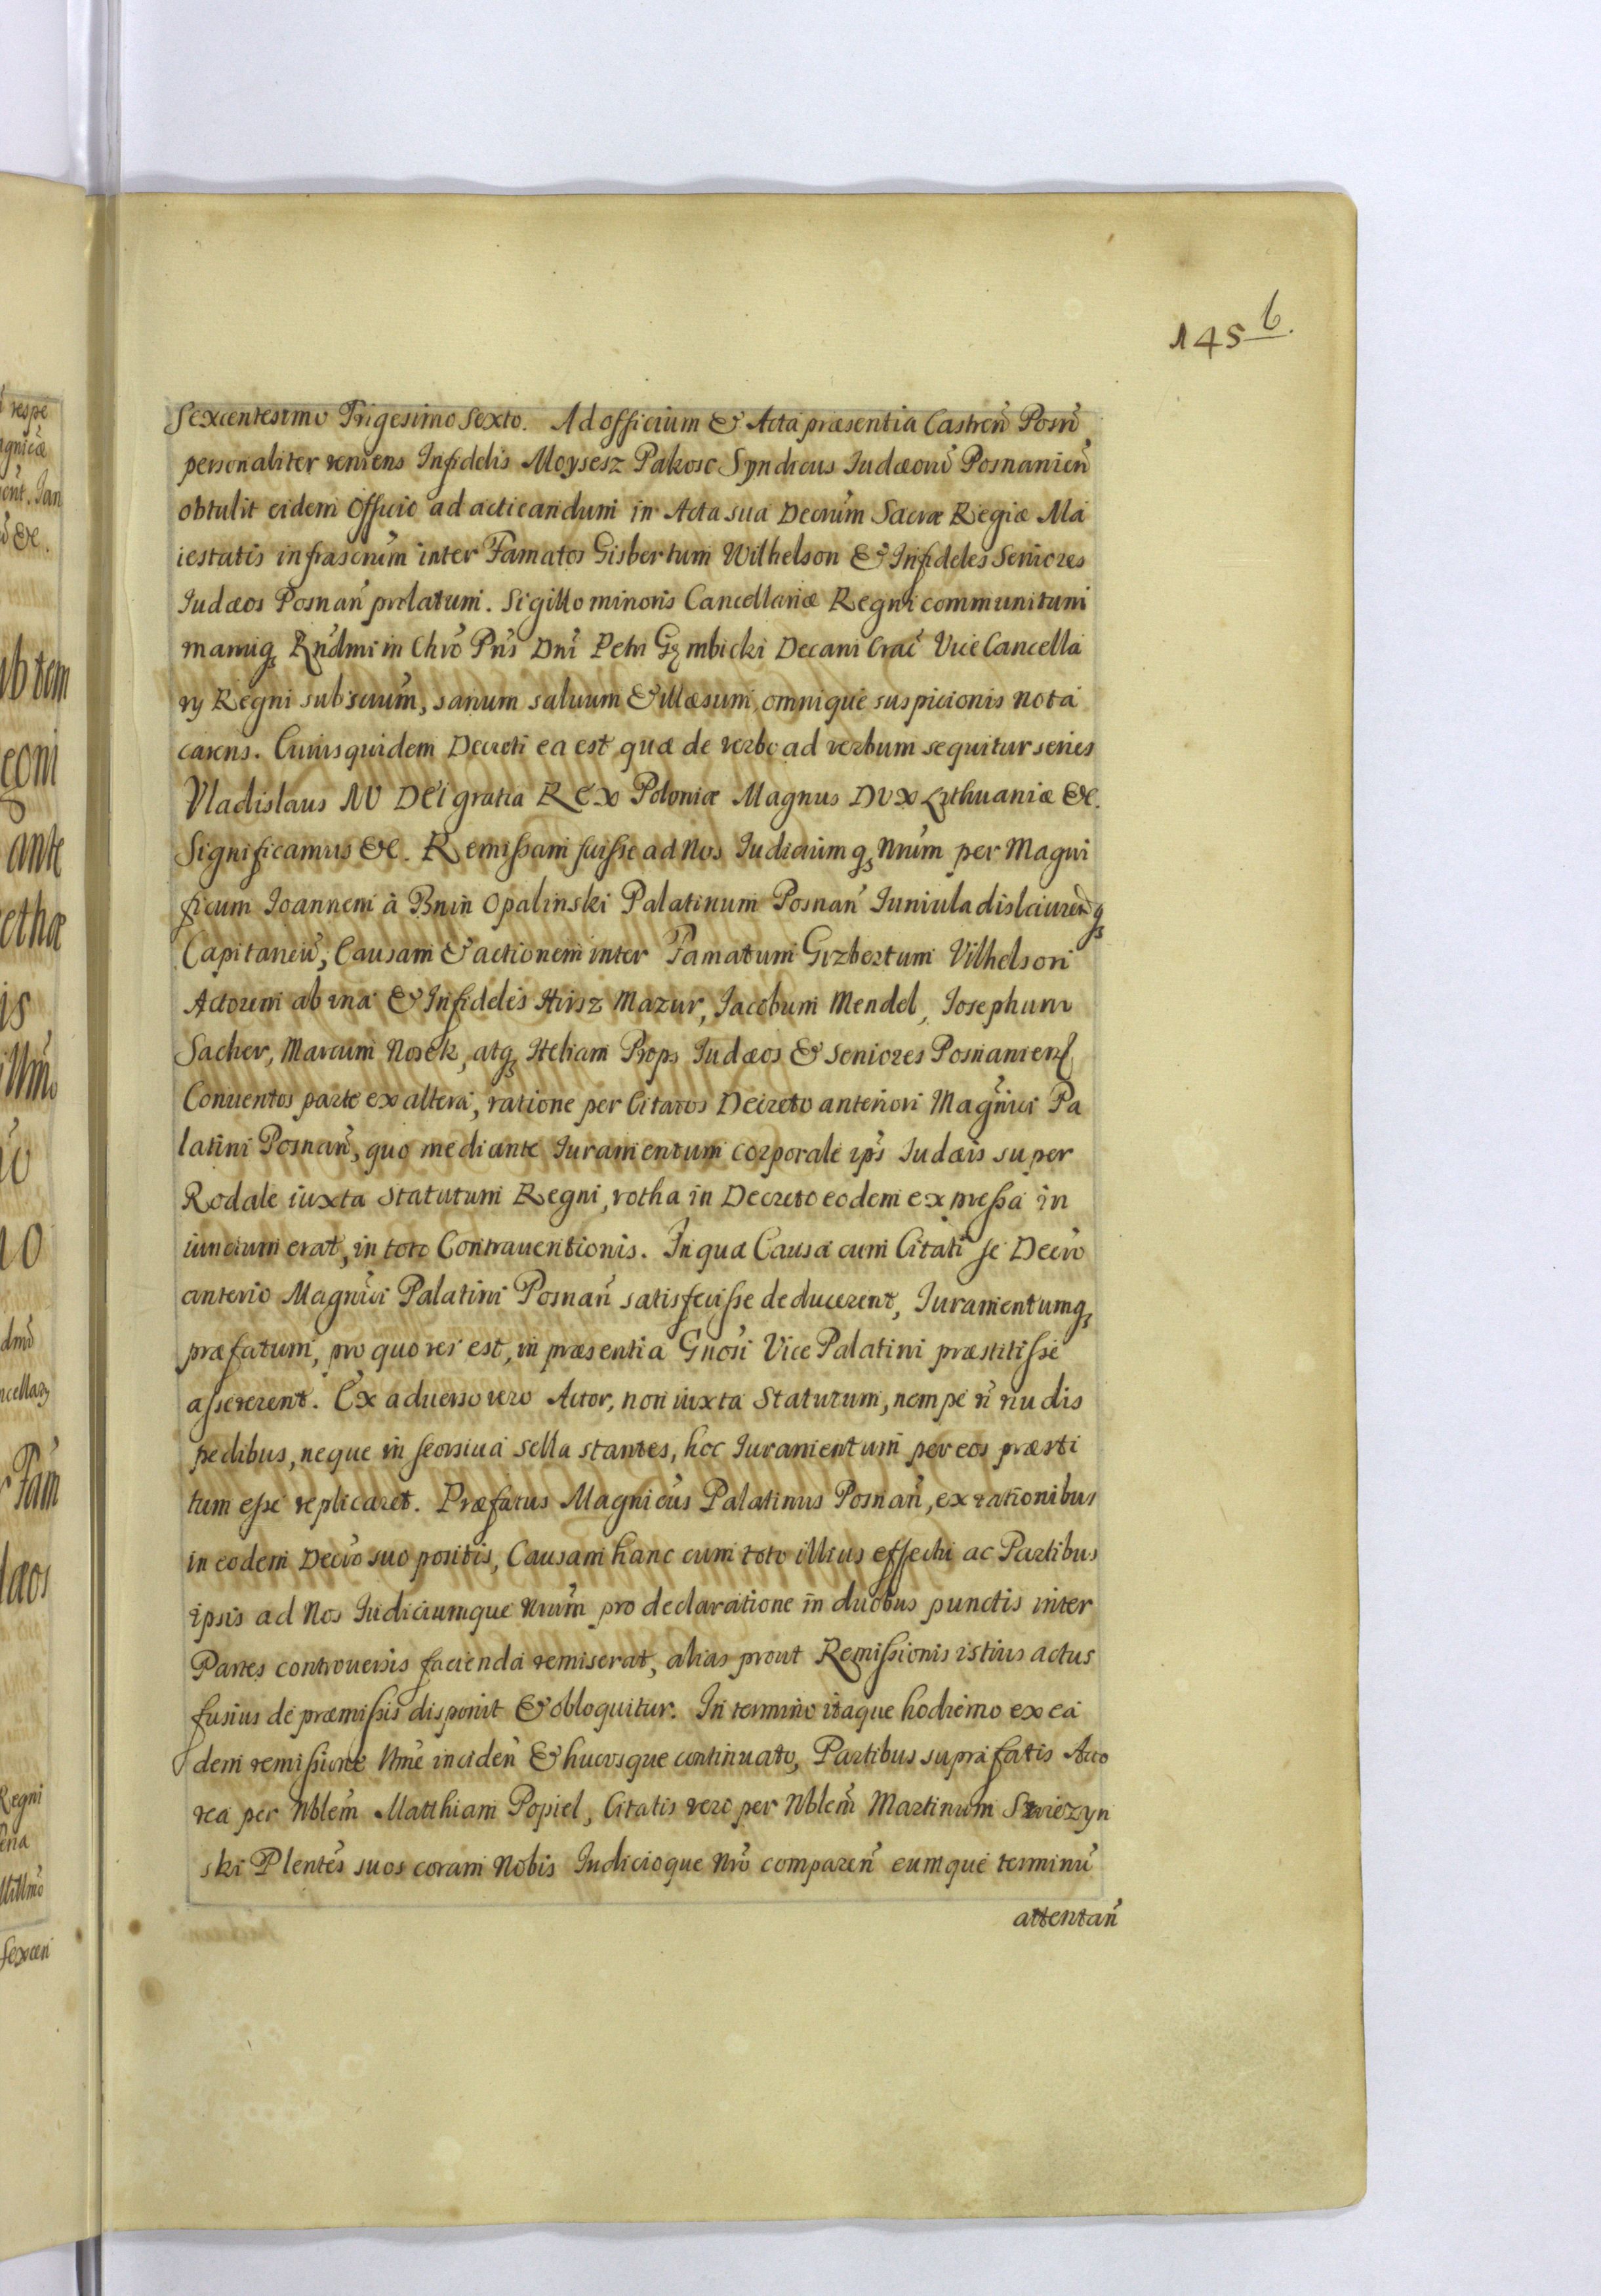 145 b.
Sexcentesimo Trigesimo Sexto. Ad officium & Acta præsentia Castreñ Posñ
personaliter veniens Infidelis Moysesz Pakosc Syndicus Iudæorũ Posnanieñ
obtulit eidem Officio ad acticandum in Acta sua Decrũm Sacræ Regiæ Ma
iestatis infrascrũm inter Famatos Gisbertum Wilhelson & Infideles Seniores
Iudæos Posnañ prolatum. Sigillo minoris Cancellariæ Regni communitum
manuq Rñdmi in Chrõ Pñs Dñi Petri Gęmbicki Decani Crac̃ Vice Cancella
rÿ Regni subscrũm, sanum saluum & illæsum, omnique suspicionis nota
carens. Cuius quidem Decreti ea est quæ de verbo ad verbum sequitur series
Vladislaus IV DEI gratia REx Poloniæ Magnus DVx Lithuaniæ &c.
Significamus &c. Remissam fuisse ad Nos Iudiciumq Nrũm per Magni
ficum Ioannem à Bnin Opalinski Palatinum Posnañ Iuniuladislauieñq
Capitaneũ, Causam & actionem inter Famatum Gizbertum Vilhelson
Actorem ab vna & Infideles Hirsz Mazur, Iacobum Mendel, Iosephum
Sacher, Marcum Nosek, atq Heliam Props Iudæos & Seniores Posnanien
Conuentos parte ex altera, ratione per Citatos Decreto anteriori Magñici Pa
latini Posnañ, quo mediante Iuramentum corporale ip̃s Iudæis super
Rodale iuxta Statutum Regni, rotha in Decreto eodem expressa in
iunctum erat, in toto Contrauentionis. In qua Causa cum Citati se Decrõ
anterio Magñici Palatini Posnañ satisfecisse deducerent, Iuramentumq
præfatum, pro quo res est, in præsentia Gñosi Vice Palatini præstitisse
assererent. Ex aduerso vero Actor, non iuxta Statutum, nempe ñ nudis
pedibus, neque in seorsiua sella stantes, hoc Iuramentum per eos præsti
tum esse replicaret. Præfatus Magnicũs Palatinus Posnañ, ex rationibus
in eodem Decrõ suo positis, Causam hanc cum toto illius effectu ac Partibus
ipsis ad Nos Iudiciumque Nrũm pro declaratione in duobus punctis inter
Partes controuersis facienda remiserat, alias prout Remissionis istius actus
fusius de præmissis disponit & obloquitur. In termino itaque hodierno ex ea
dem remissione Nme incideñ & hucusque continuato, Partibus suprafatis Acto
rea per Nblem̃ Matthiam Popiel, Citatis vero per Nblem̃ Martinum Swiezyn
ski Plentẽs suos coram Nobis Iudicioque Nrõ compareñ eumque terminũ
attentañ